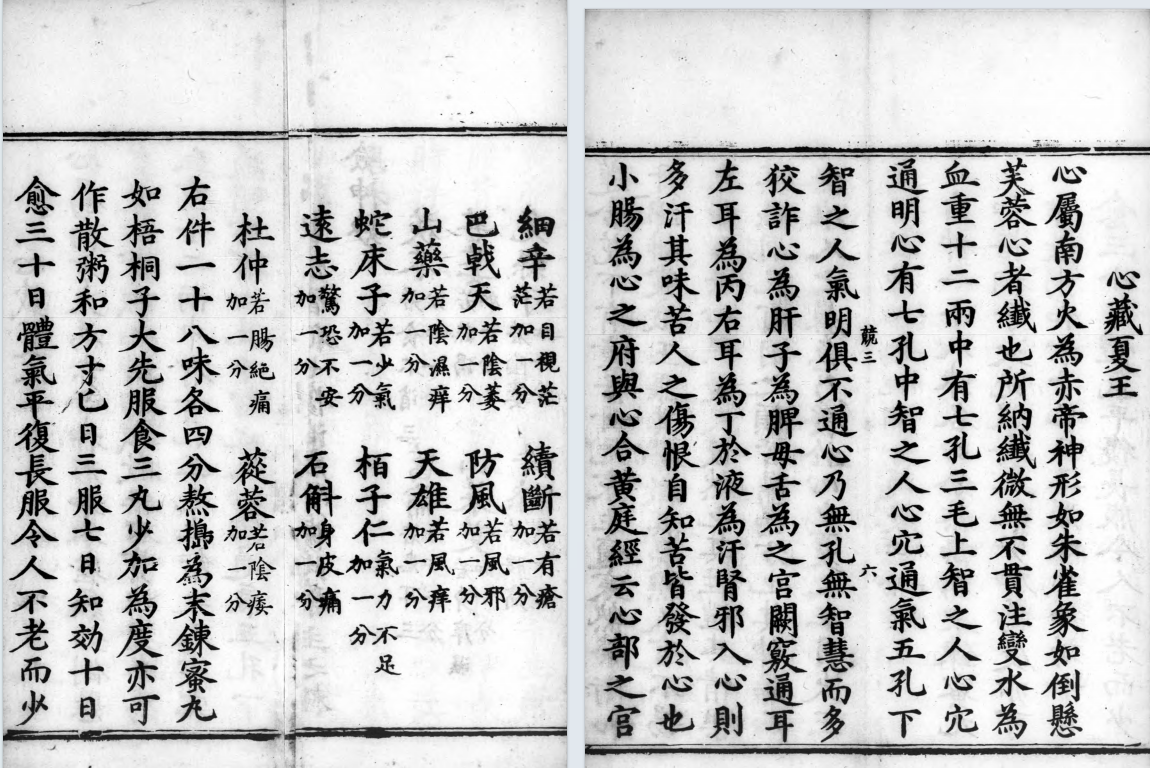 細辛若目視茫茫加一分 續斷若有瘡加一分
巴戟天若陰萎加一分 防風若風邪加一分
山藥若陰濕痒加一分 天雄若風痒加一分
蛇床子若少氣加一分 栢子仁氣力不足加一分
遠志驚恐不安加一分 石斛身皮痛加一分
杜仲若腸絕痛加一分 蓯蓉若陰痿加一分
右件一十八味各四分熬搗為末鍊蜜丸
如梧桐子大先服食三丸少加為度亦可
作散粥和方寸匕日三服七日知効十日
愈三十日體氣平復長服令人不老而少
心藏夏王
心屬南方火為赤帝神形如朱雀象如倒懸
芙蓉心者纖也所納纖微無不貫注變水為
血重十二兩中有七孔三毛上智之人心穴
通明心有七孔中智之人心穴通氣五孔下
競三 六
智之人氣明俱不通心乃無孔無智慧而多
狡詐心為肝子為脾母舌為之宮闕竅通耳
左耳為丙右耳為丁於液為汗腎邪入心則
多汗其味苦人之傷恨自知苦皆發於心也
小腸為心之府與心合黃庭經云心部之宮